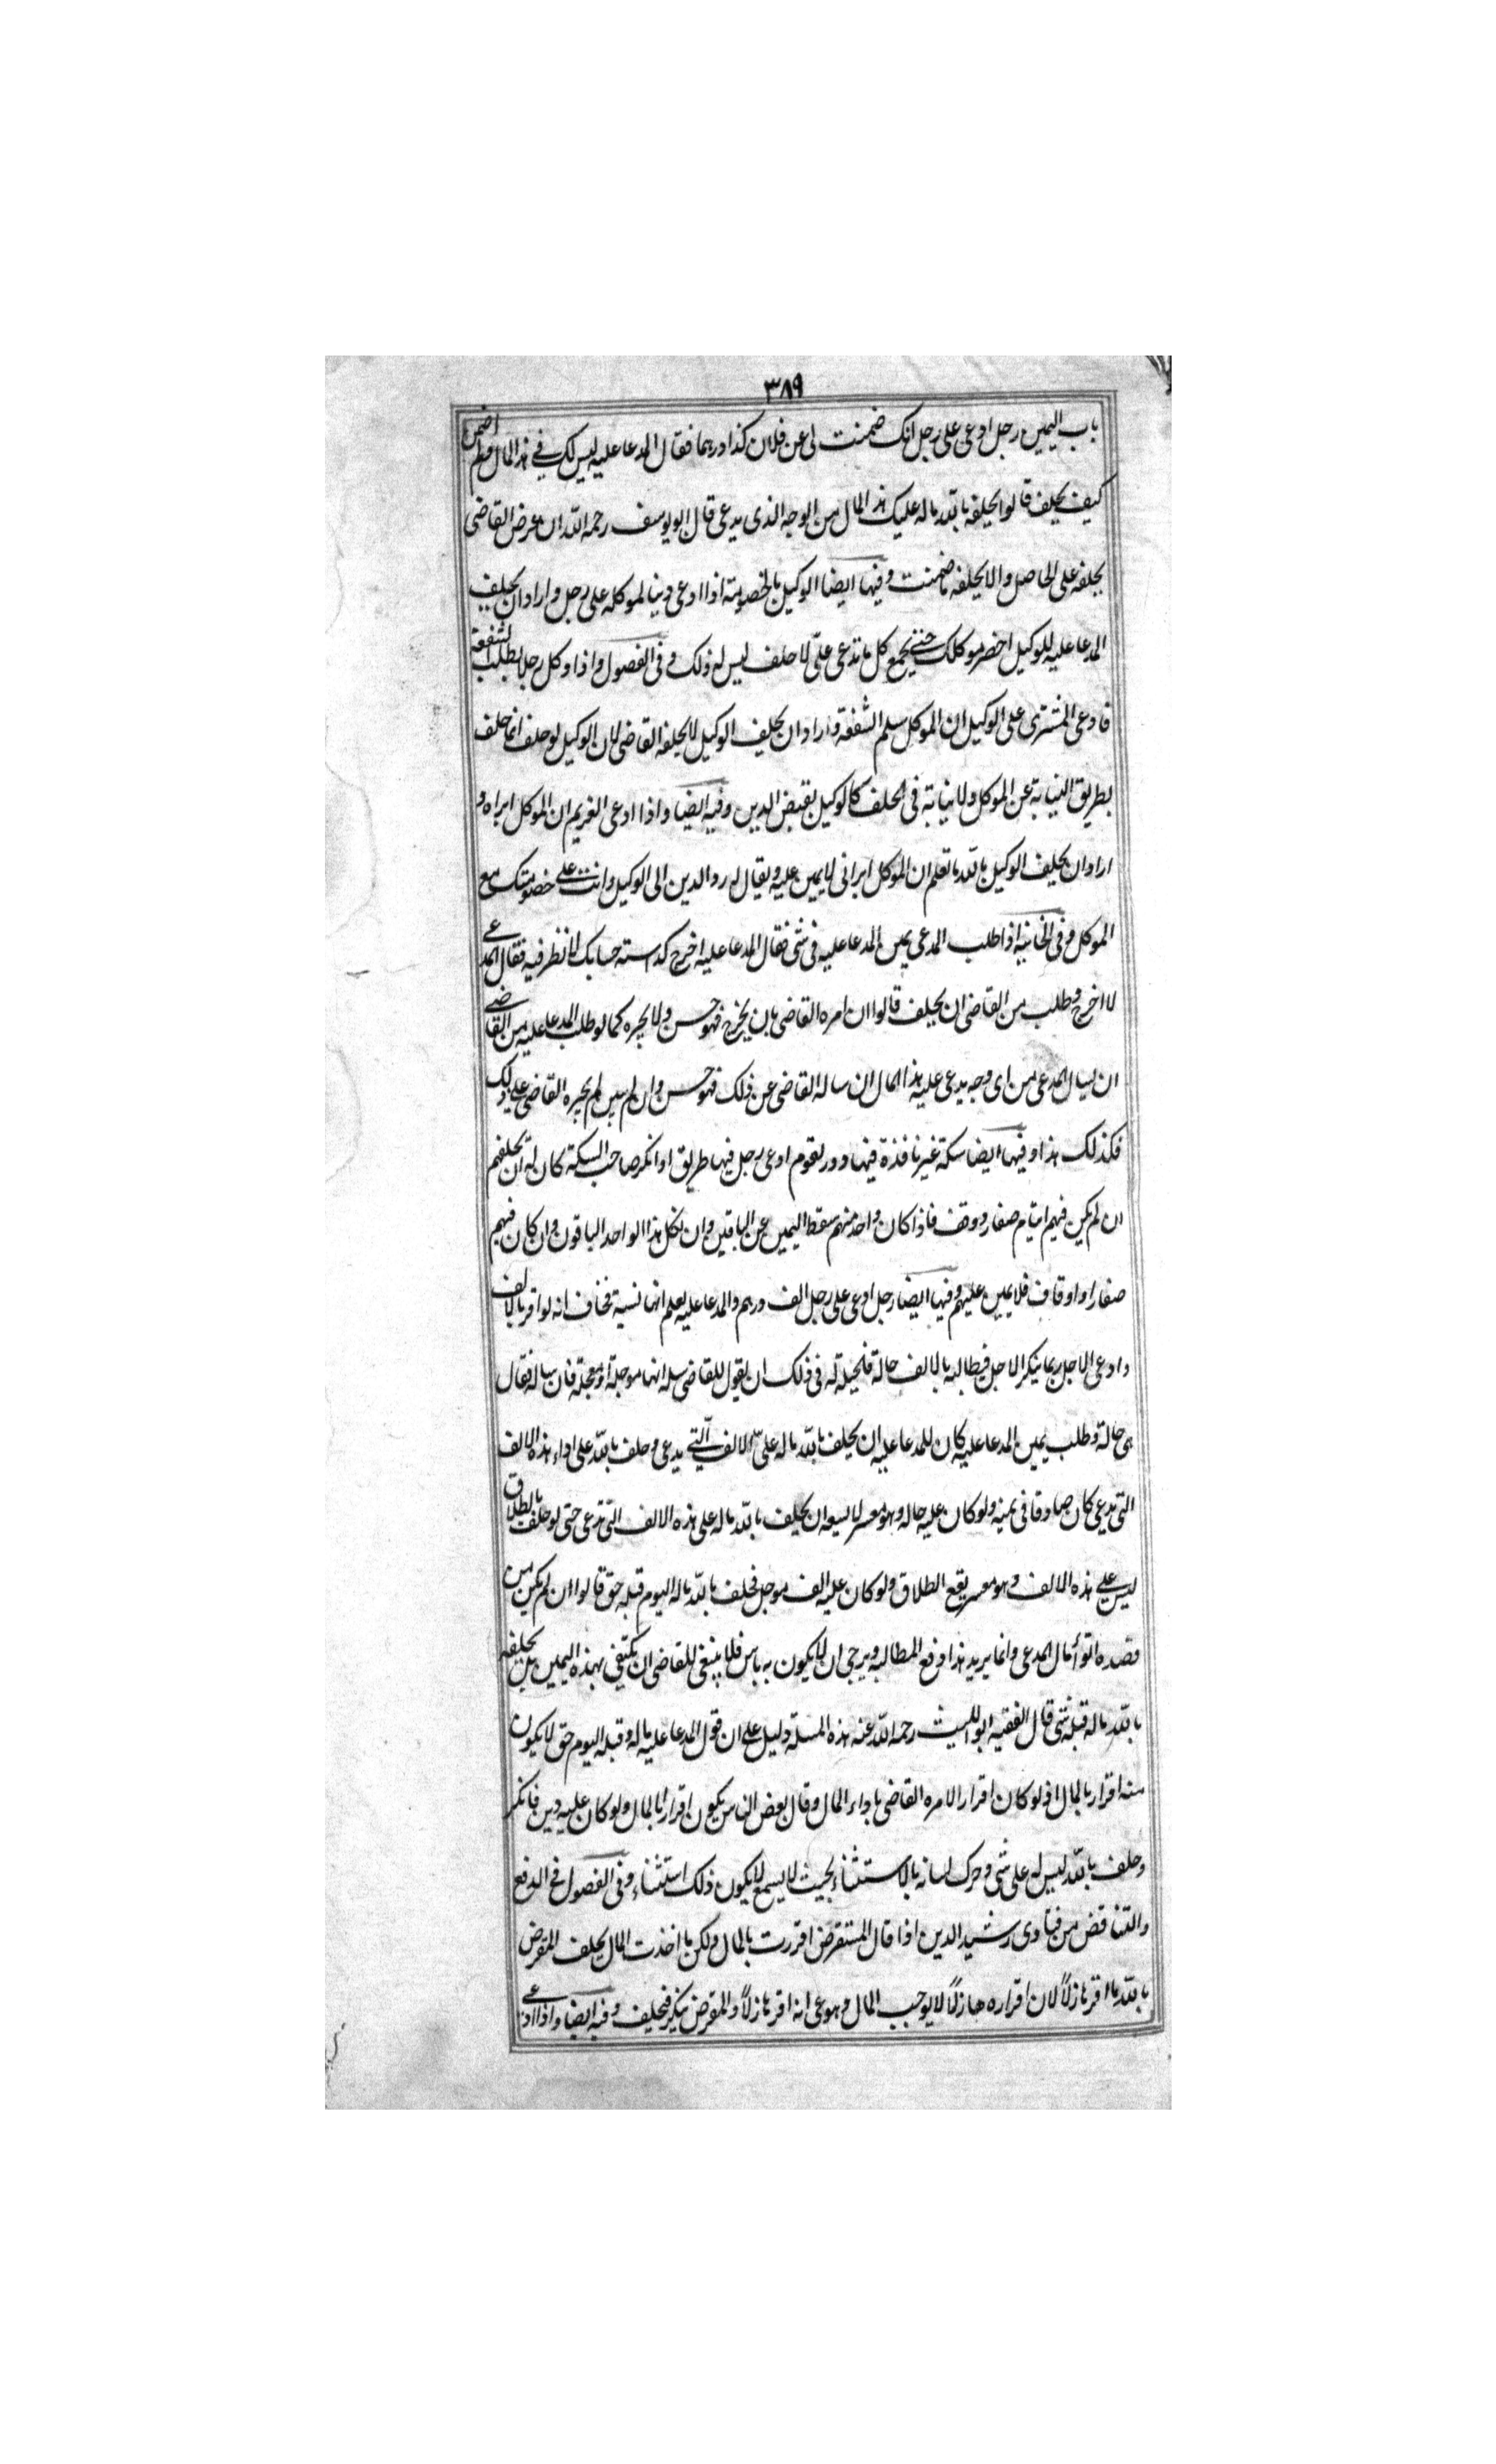 ٣٨٩
باب اليمين رجل ادعى على رجل انك ضمنت لى عن فلان كذا درهما فقال المدعا عليه ليس لك فى هذا المال ولم اضمن
كيف يحلف قالوا يحلفه بالله ما له عليك هذا المال من الوجه الذى يدعى قال ابو يوسف رحمه الله ان عرض القاضى
يحلفه على الحاصل والا يحلفه ما ضمنت وفيها ايضا الوكيل بالخصومة اذا ادعى دينا لموكله على رجل واراد ان يحلف
المدعا عليه للوكيل احضر موكلك حتى يجمع كل ما تدعى علىّ لا حلف ليس له ذلك وفى الفصول واذا وكل رجلا بطلب الشفعة
فادعى المشترى على الوكيل ان الموكل سلم الشفعة واراد ان يحلف الوكيل لا يحلفه القاضى لان الوكيل لو حلف انما حلف
بطريق النيابة عن الموكل ولا نيابة فى الحلف كالوكيل بقبض الدين وفيه ايضا واذا ادعى الغريم ان الموكل ابراه و
اراد ان يحلف الوكيل بالله ما تعلم ان الموكل ابرانى لا يمين عليه ويقال له رد الدين الى الوكيل وانت على خصومتك مع
الموكل وفى الخانية اذا طلب المدعى يمين المدعا عليه فى شى فقال المدعا عليه اخرج حسابك لانظر فيه فقال المدعى
لا اخرج وطلب من القاضى ان يحلف قالوا ان امره القاضى بان يخرج فهو حسن ولا يجبره كما لو طلب المدعا عليه من القاضى
ان يسال المدعى من اى وجه يدعى عليه هذا المال ان ساله القاضى عن ذلك فهو حسن وان لم يبين لم يجبره القاضى على ذلك
فكذلك هذا وفيها ايضا سكة غير نافذة فيها دور لقوم ادعى رجل فيها طريق او انكر صاحب السكة كان له ان يحلفهم
ان لم يكن فيهم ايتام صغار ووقف فاذا كان واحد منهم سقط اليمين عن الباقين وان نكل هذا الواحد الباقون وان كان فيهم
صغار او اوقاف فلا يمين عليهم وفيها ايضا رجل ادعى على رجل الف درهم والمدعا عليه يعلم انها نسية فخاف انه لو اقر بالالف
وادعى الاجل ربما ينكر الاجل فيطالبه بالالف حالة فلحيلة له فى ذلك ان يقول للقاضى سله انها موجلة او معجلة فان ساله فقال
هى حالة وطلب يمين المدعا عليه كان للمدعا عليه ان يحلف بالله ما له علىّ الالف التى يدعى وحلف بالله على اداء هذه الالف
التى تدعى كان صادقا فى يمينه ولو كان عليه حاله وهو معسر لا يسعه ان يحلف بالله ما له على هذه الالف التى تدعى حتى لو حلف بالطلاق
ليس على هذه الالف وهو معسر يقع الطلاق ولو كان عليه الف موجل فحلف بالله ما له اليوم قبله حق قالوا ان لم يكن من
قصده اتوأ مال المدعى وانما يريد هذا دفع المطالبة ويرجى ان لا يكون به باس فلا ينبغى للقاضى ان يكتفى بهذه اليمين بل يحلفه
بالله ما له قبله شى قال الفقيه ابو الليث رحمه الله عنه هذه المسلة دليل على ان قول المدعا عليه ما له وقبله اليوم حق لا يكون
منه اقرار بالمال اذ لو كان اقرار الامره القاضى باداء المال وقال بعض الناس يكون اقرارا بالمال ولو كان عليه دين فانكر
وحلف بالله ليس له على شى وحرك لسانه بالاستثناء بحيث لا يسمع لا يكون ذلك استثناء وفى الفصول فى الدفع
والتناقض من فتاوى رشيد الدين اذا قال المستقرض اقررت بالمال ولكن ما اخذت المال يحلف المقرض
بالله ما اقر هازلاً لان اقراره هازلاً لا يوجب المال وهو عى انه اقر هازلاً والمقرض ينكر فيحلف وفيه ايضا واذا ادعى